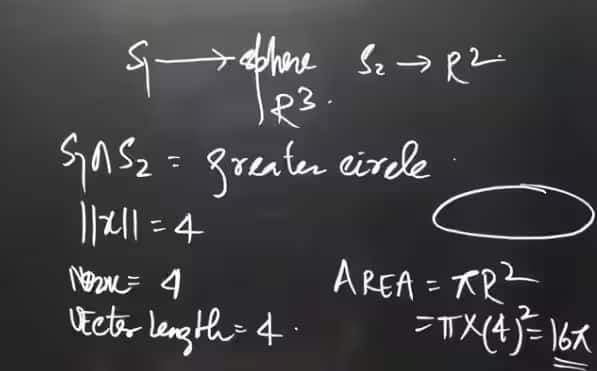 S₁ → sphere S₂ → R².
R³.
S₁ ∩ S₂ = greater circle.
||x|| = 4
Norm = 4
Vector length = 4.
AREA = πR²
= π × (4)² = 16π